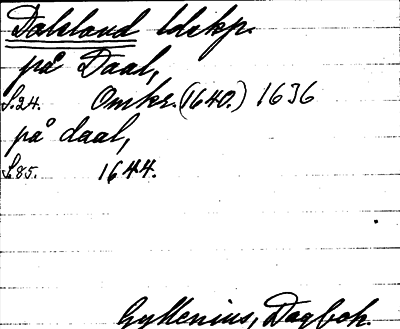 Dalsland ldskp.
på Daal,
S.24. Omkr. (1640.) 1636
på daal,
S.85. 1644.
Gyllenius, Dagbok